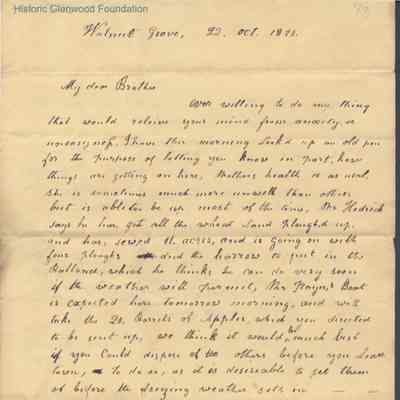 Historic Glenwood Foundation
Walnut Grove, 22. Oct. 18
My dear Brother
Ever willing to do any thing
that would relieve your mind from anxiety, or
uneasyness, I have this morning look'd up an old pen
for the purpose of letting you know in part, how
things are getting on here, Mothers health is as usual,
she is sometimes much more unwell than others
but is able to be up most of the time, Mr Hedrick
says he has got all the wheat land ploughed up,
and has sewed acres, and is going on with
four ploughs and the harrow to put in the
Ballance, which he thinks he can do very soon
if the weather will permit, Mr Boat
is expected here tomorrow morning, and will
take the 20. Barrels of Apples, which you directed
to be sent up, we think it would be much best
if you could dispose of the others before you leave
town, to do so, as it is desireable to get them
off before the freezing weather sets in